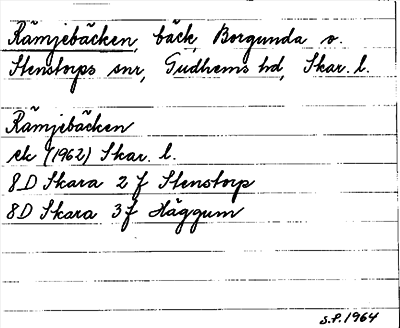 Rämjebäcken, bäck, Borgunda o.
Stenstorps snr, Gudhems hd, Skar. l.
Rämjebäcken
ek (1962) Skar. l.
8D Skara 2f Stenstorp
8D Skara 3f Häggum
S.P. 1964